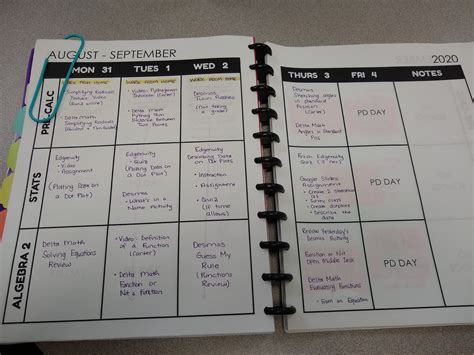 AUGUST - SEPTEMBER
2020
MON 31
TUES 1
WED 2
THURS 3
FRI 4
NOTES
WORK FROM HOME
WORK FROM HOME
WORK FROM HOME
PRE-CALC
Simplifying Radicals
Video
Delta Math
Simplifying Radicals
Video: Pythagorean
Theorem
(Carter)
Delta Math
Pythag Thm
Distance Between
Two Points
Desmos
Delta Math
Desmos
Sketching angles
in standard
Position
(Carter)
Delta Math
Angles in Standard
Pos
PD DAY
STATS
Edgenuity
Video
Assignment
(Plotting Data on
a Dot Plot)
Edgenuity
Quiz
(Plotting Data on
a Dot Plot)
Desmos
What's in a
Name Activity
Edgenuity
Describing Data
on Dot Plots
Instruction
Assignment
Quiz
(if time
allows)
Finish Edgenuity
Quiz
Google Slides
Assignment
Create 2 statistical
Create
Describe the data
PD DAY
ALGEBRA 2
Delta Math
Solving Equations
Review
Video: Definition
of a Function
(Carter)
Delta Math
Function or
Not a Function
Desmos
Guess My
Rule
(Functions
Review)
Yesterday's
Desmos Activity
Function or Not
Open Middle Task
Delta Math
Evaluating Functions
PD DAY